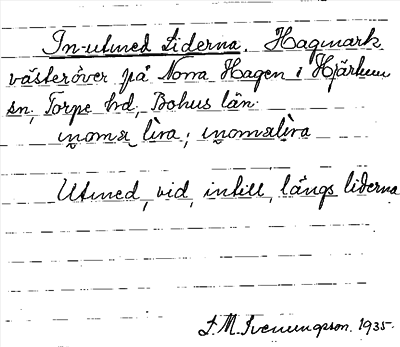 In-utmed Liderna. Hagmark
västeröver på Norra Hagen i Hjärtum
sn, Torpe hd, Bohus län.
Utmed, vid, intill, längs liderna
1935.